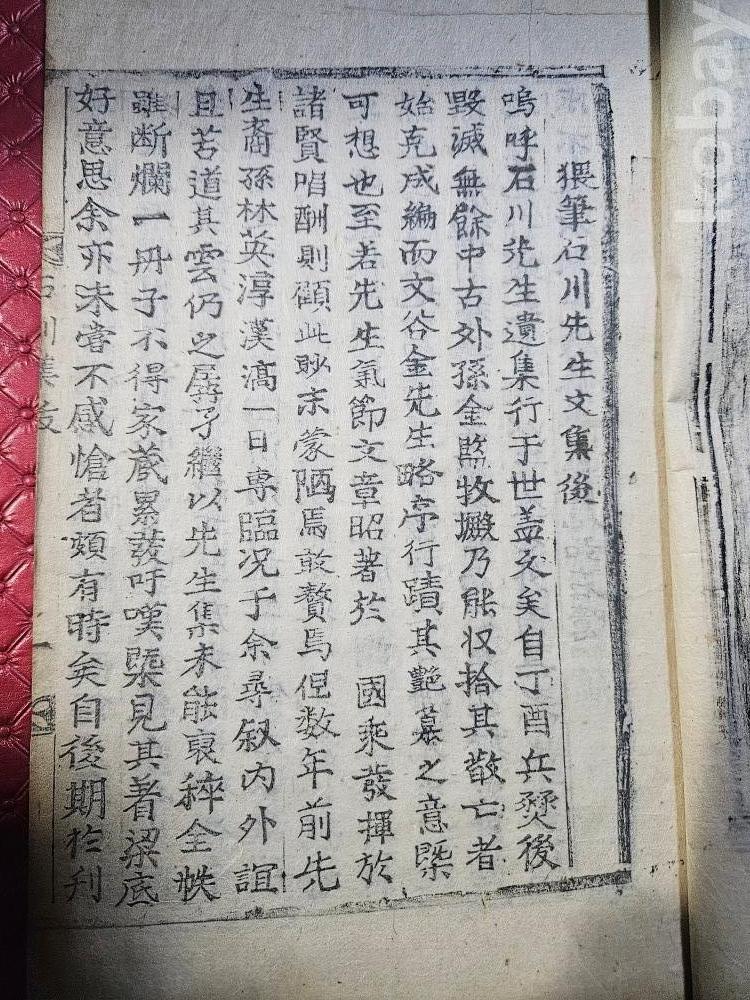 猥筆石川先生文集後
嗚呼石川先生遺集行于世盖久矣自丁酉兵燹後
毀滅無餘中古外孫金監牧擨乃能収拾其散亡者
始克成編而文谷金先生略序行蹟其艶慕之意槩
可想也至若先生氣節文章昭著於 國乘發揮於
諸賢唱酬則顧此眇末蒙陋焉敢贅焉但数年前先
生裔孫林英淳漢滈一日専臨况于余尋叙内外誼
且苦道其雲仍之孱孑繼以先生集未能裒稡全帙
雖断爛一冊子不得家蔵累發吁嘆槩見其着梁底
好意思余亦未嘗不感愴者頗有時矣自後期於刋
石川集友
一